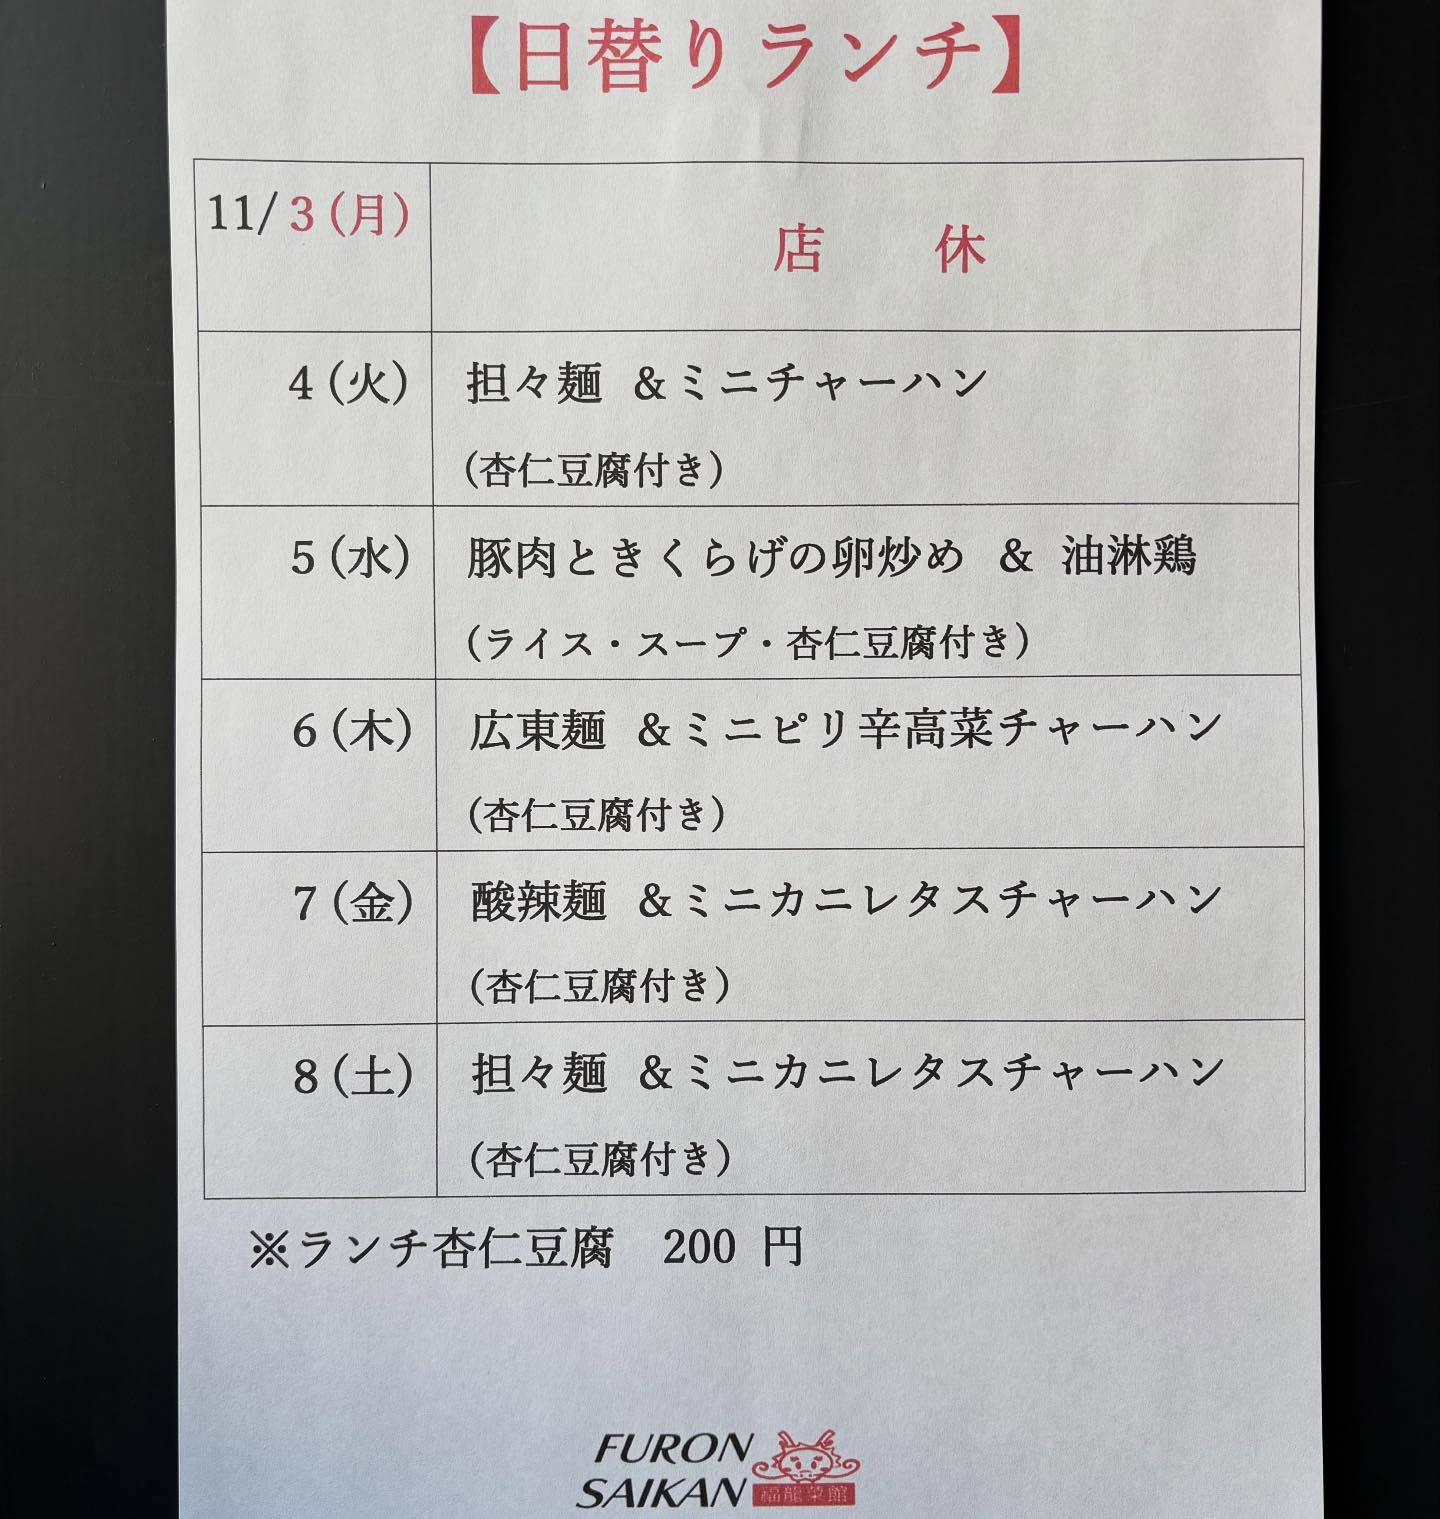 【日替りランチ】
11/3(月) 店 休
4(火) 担々麺 &ミニチャーハン
(杏仁豆腐付き)
5(水) 豚肉ときくらげの卵炒め & 油淋鶏
(ライス・スープ・杏仁豆腐付き)
6(木) 広東麺 &ミニピリ辛高菜チャーハン
(杏仁豆腐付き)
7(金) 酸辣麺 &ミニカニレタスチャーハン
(杏仁豆腐付き)
8(土) 担々麺 &ミニカニレタスチャーハン
(杏仁豆腐付き)
※ランチ杏仁豆腐 200 円
FURON
SAIKAN
福龍菜館